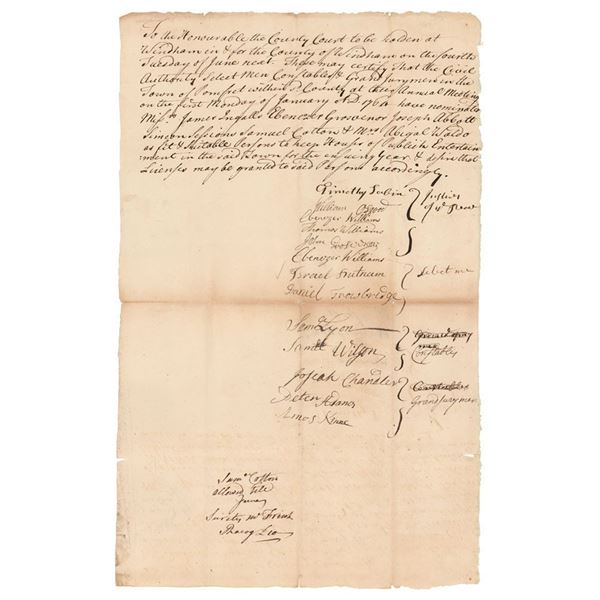 To the Honourable the County Court to be holden at
Windham in & for the County of Windham on the fourth
Tuesday of June next. These may certify that the Civil
Authority Select Men Constables & Grandjurymen in the
Town of Pomfret within sd County at their Annual Meeting
on the first Monday of January A.D. 1764 have nominated
Messrs James Ingalls Ebenezer Grosvenor Joseph Abbott
Simeon Sessions Samuel Cotton & Mrs Abigal Waldo
as fit & suitable Persons to keep Houses of Publick Entertain
ment in the said town for the ensuing Year & desire that
Licenses may be granted to said Persons accordingly.
Timothy Sabin Justices
William Osgood of ye Peace
Ebenezer Williams
Thomas Williams
John Grosvenor
Ebenezer Williams
Israel Putnam Select me
Daniel Trowbridge
Saml Lyon
Samll Wilson Constables
Josiah Chandler Constables
Peter Grandjurymen
Amos
Saml Cotton
allowed till
Surety Mr